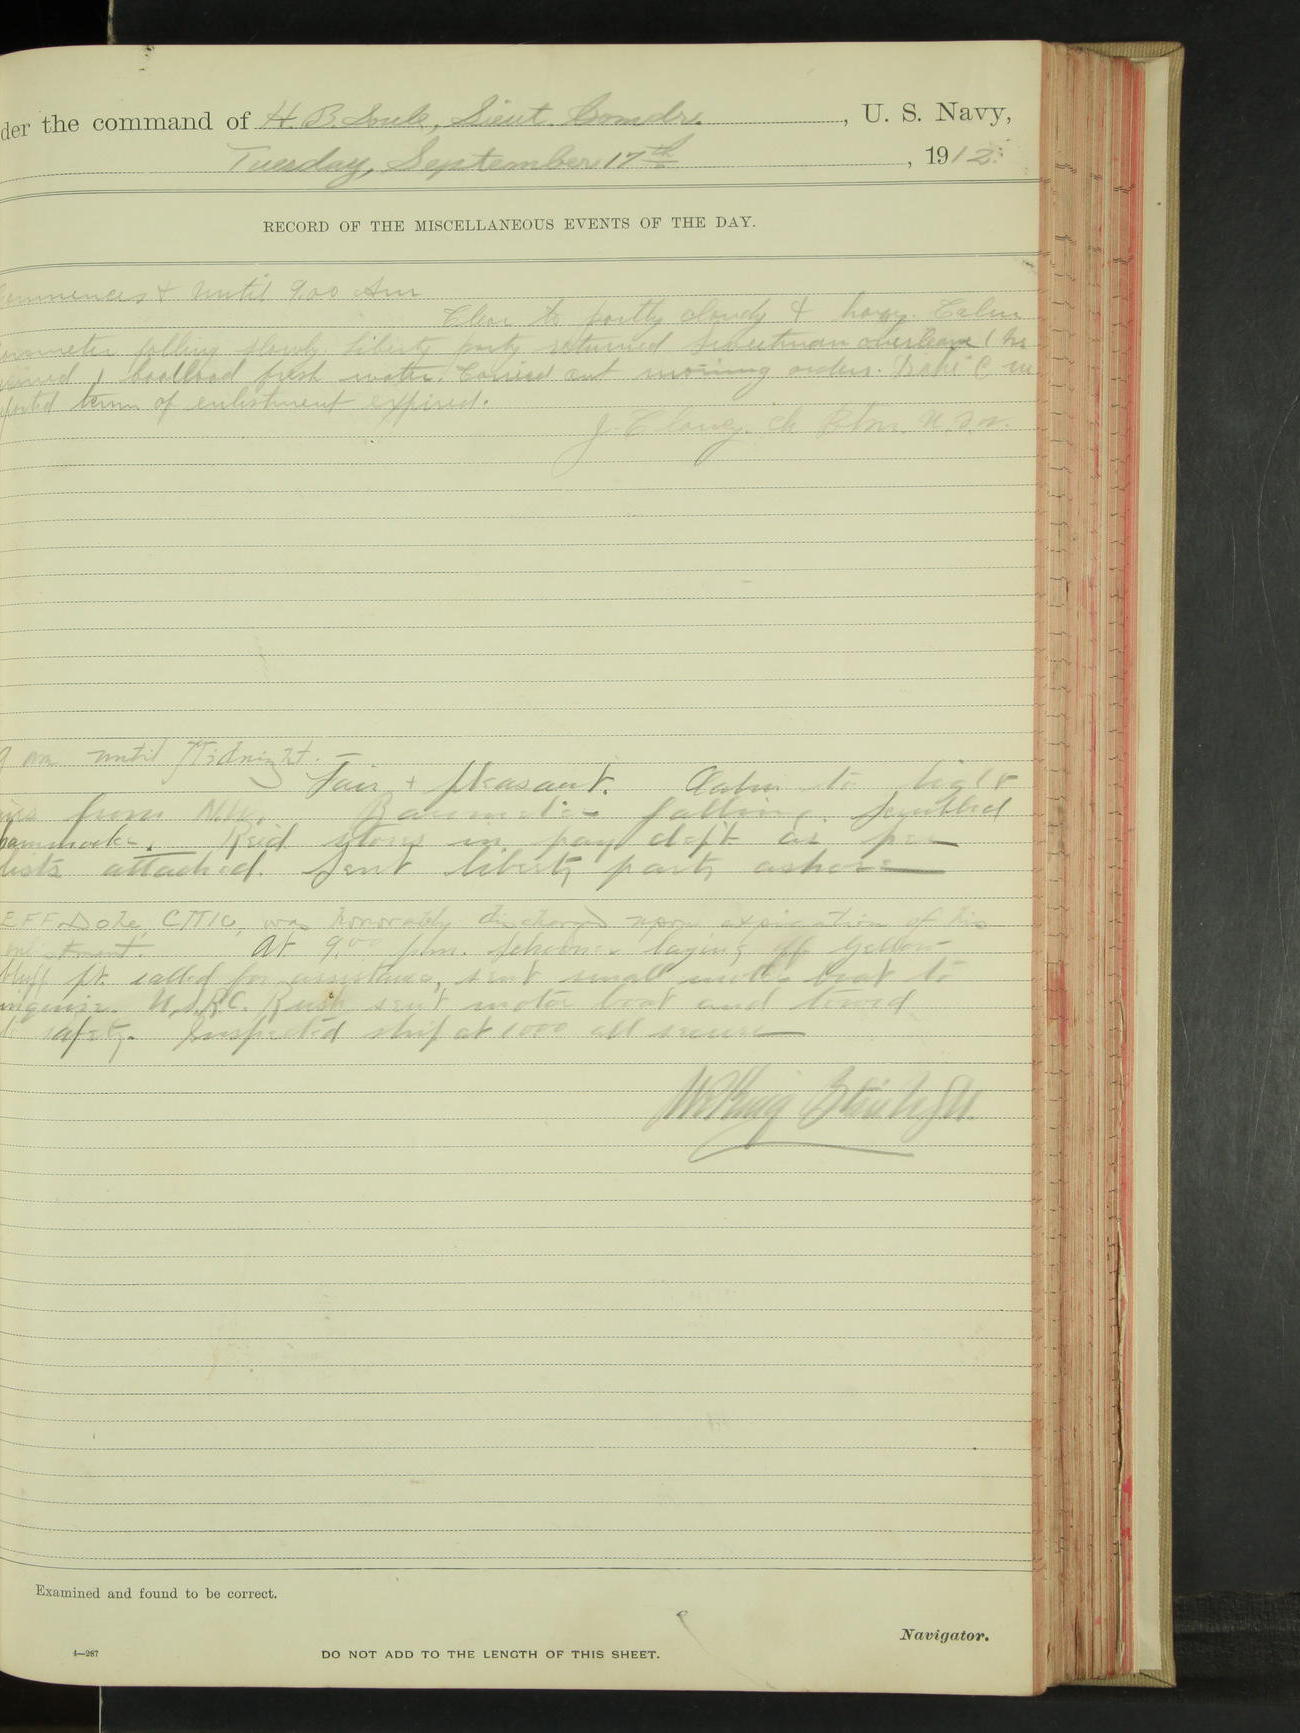 der the command of H. B. Soule, Lieut. Comdr., U. S. Navy,
Tuesday, September 17th, 1912.
RECORD OF THE MISCELLANEOUS EVENTS OF THE DAY.
Commences & until 9.00 Am
Clear to partly cloudy & hazy. Calm
barometer falling slowly liberty party returned overleave
fresh water. Carried out morning orders.
term of enlistment expired.
J. Clancy. Ch Btsn. U.S.N.
9 am until Midnight. —
Fair + pleasant. Calm to light
from N.W. Barometer falling. Scrubbed
hammocks. Rec'd stores in pay dep't as per
lists attached. Sent liberty party ashore
was honorably discharged upon expiration of his
enlistment. At 9.00 p.m. schooner laying off Yellow
bluff pt. called for assistance, sent small motor boat to
inquire. U.S.R.C. Rush sent motor boat and towed
to safety. Inspected ship at 1000 all secure
Examined and found to be correct.
Navigator.
4—287
DO NOT ADD TO THE LENGTH OF THIS SHEET.